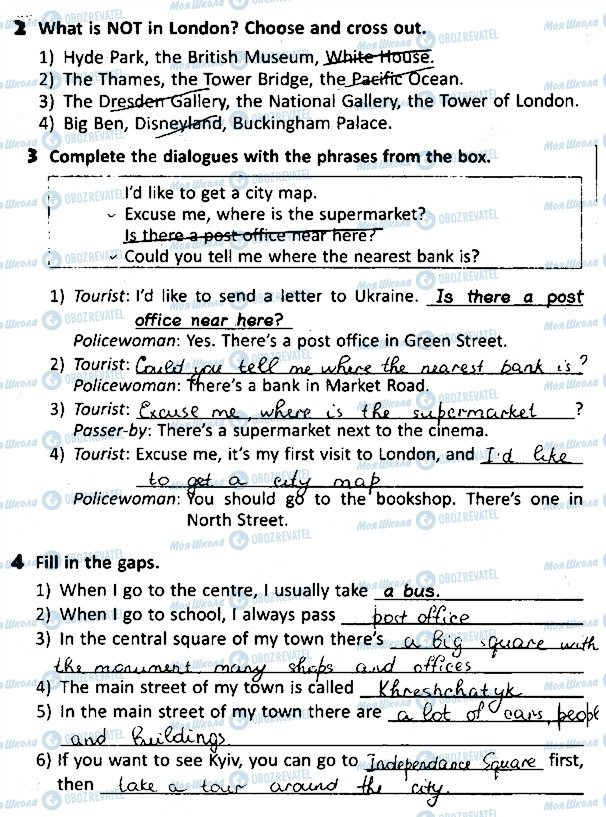 2 What is NOT in London? Choose and cross out.
1) Hyde Park, the British Museum, White House.
2) The Thames, the Tower Bridge, the Pacific Ocean.
3) The Dresden Gallery, the National Gallery, the Tower of London.
4) Big Ben, Disneyland, Buckingham Palace.
3 Complete the dialogues with the phrases from the box.
I'd like to get a city map.
Excuse me, where is the supermarket?
Is there a post office near here?
Could you tell me where the nearest bank is?
1) Tourist: I'd like to send a letter to Ukraine. Is there a post
office near here?
Policewoman: Yes. There's a post office in Green Street.
2) Tourist: Could you tell me where the nearest bank is?
Policewoman: There's a bank in Market Road.
3) Tourist: Excuse me, where is the supermarket ?
Passer-by: There's a supermarket next to the cinema.
4) Tourist: Excuse me, it's my first visit to London, and I'd like
to get a city map
Policewoman: You should go to the bookshop. There's one in
North Street.
4 Fill in the gaps.
1) When I go to the centre, I usually take a bus.
2) When I go to school, I always pass post office
3) In the central square of my town there's a big square with
the monument, many shops and offices
4) The main street of my town is called Khreshchatyk
5) In the main street of my town there are a lot of cars, people
and buildings.
6) If you want to see Kyiv, you can go to Independance Square first,
then take a tour around the city.
Моя Школа OBOZREVATEL